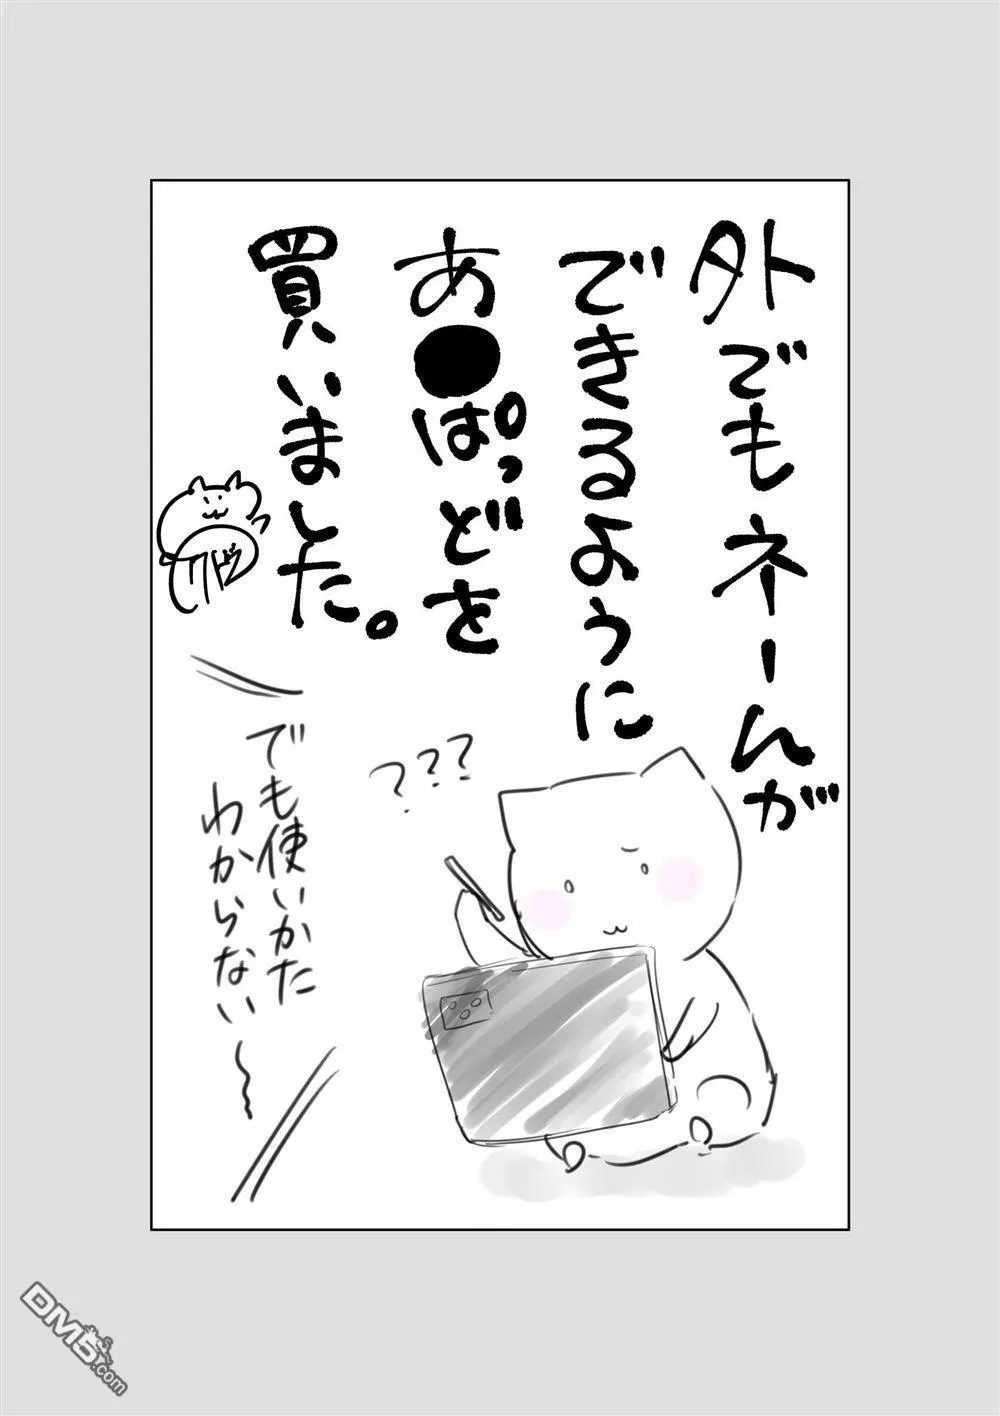 外でもネームが
できるように
あ●ぱっどを
買いました。
???
でも使いかた
わからない〜
DM5.com